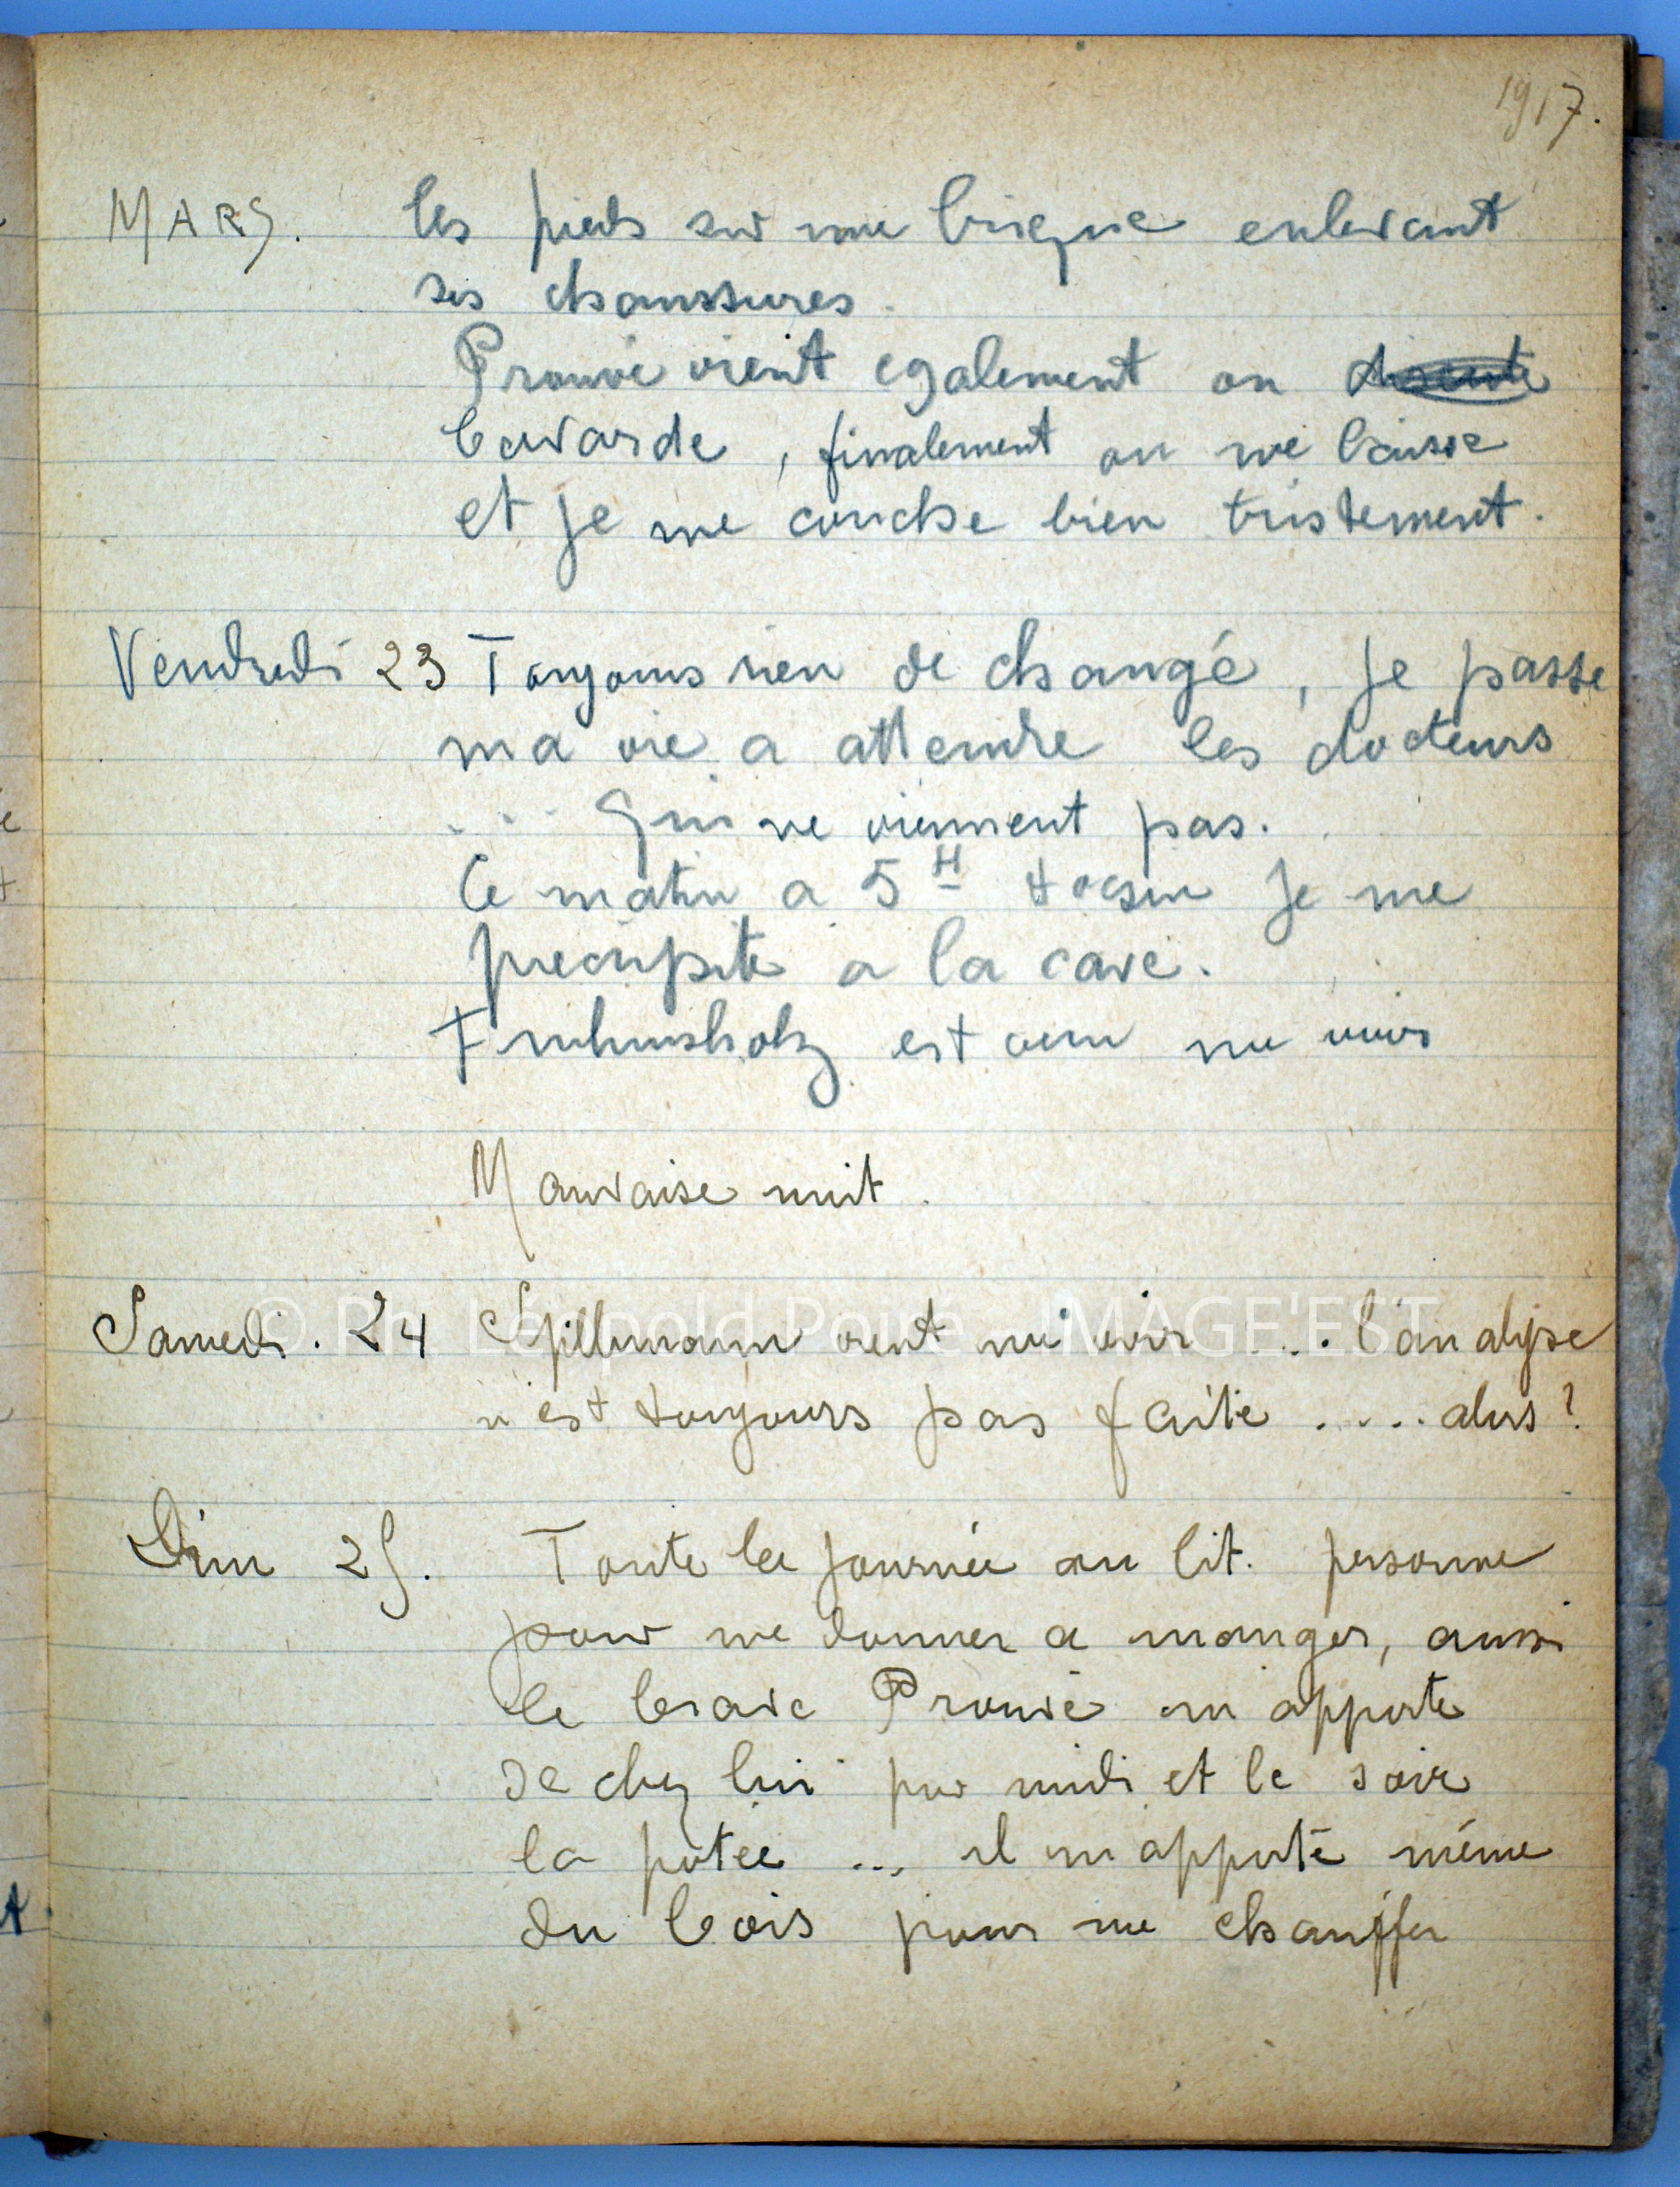 1917.
MARS. les pieds sur une brique enlevant
ses chaussures.
Prouvé vient egalement on discute
bavarde, finalement on me laisse
et je me couche bien tristement.
Vendredi 23 Toujours rien de changé, je passe
ma vie a attendre les docteurs
... qui ne viennent pas.
Ce matin a 5 H tocsin je me
precipite a la cave.
Fruhinsholz est venu me voir
Mauvaise nuit.
Samedi. 24 Spillmann vient me voir ... l'analyse
n'est toujours pas faite .... alors ?
Dim 25. Toute la journée au lit. personne
pour me donner a manger, aussi
le brave Prouvé m apporte
de chez lui pour midi et le soir
la potée ... il m apporte même
du bois pour me chauffer